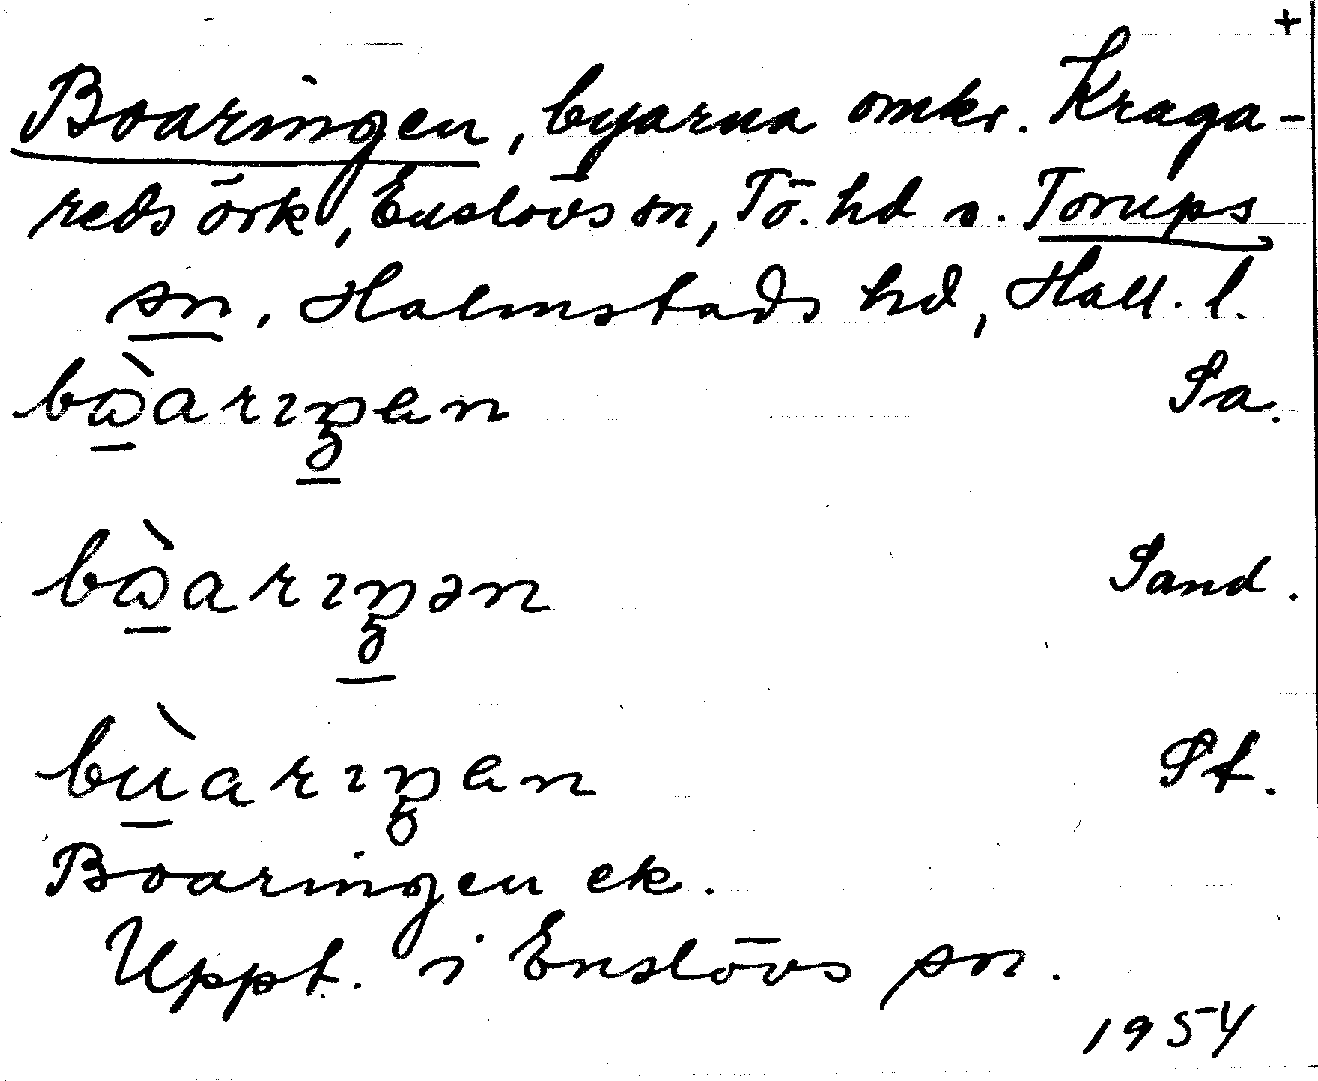 +
Boaringen, byarna omkr. Kraga-
reds örk, Enslövs sn, Tö. hd o. Torups
sn, Halmstads hd, Hall. l.
bɷ̀arɪŋen Sa.
bɷ̀arɪŋən Sand.
bùarɪŋen St.
Boaringen ek.
Uppt. i Enslövs sn.
1954